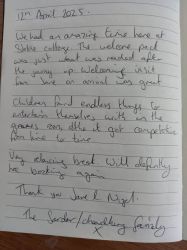 12th April 2025.
We had an amazing time here at
college. The welcome pack
was just what was needed after
the journey up. Welcoming visit
from Jane on arrival was great
Children found endless things to
entertain themselves with in the
games room, altho it got competitive
from time to time
Very relaxing break. Will definitely
be booking again
Thank you Jane & Nigel.
The / family
x